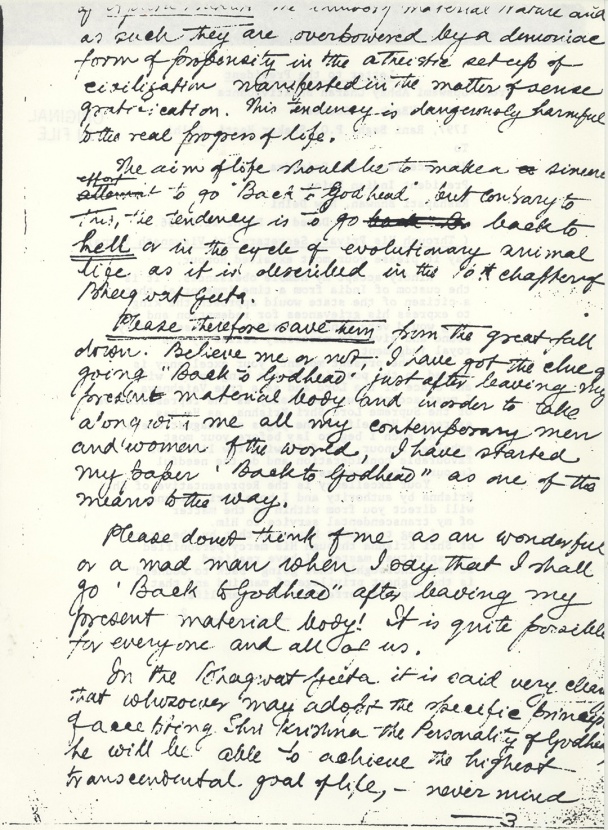 material Nature and
as such they are overpowered by a demoniac
form of propensity in the atheistic set up of
civilization manifested in the matter of sense
gratification. This tendency is dangerously harmful
to the real progress of life.
The aim of life should be to make a sincere
effort
attempt to go "Back to Godhead" but contrary to
this, the tendency is to go back to back to
hell or in the cycle of evolutionary animal
life as it is described in the 16th chapter of
Bhagwat Geeta.
Please therefore save them from the great fall
down. Believe me or not. I have got the clue of
going "Back to Godhead" just after leaving my
present material body and in order to take
along with me all my contemporary men
and women of the world, I have started
my paper "Back to Godhead" as one of the
means to the way.
Please donot think of me as an wonderful
or a mad man when I say that I shall
go 'Back to Godhead' after leaving my
present material body! It is quite possible
for everyone and all of us.
In the Bhagwat Geeta it is said very clear
that whosoever may adopt the specific princip
of accepting Shri Krishna the Personality of Godhea
he will be able to achieve the highest
transcendental goal of life, - never mind
3